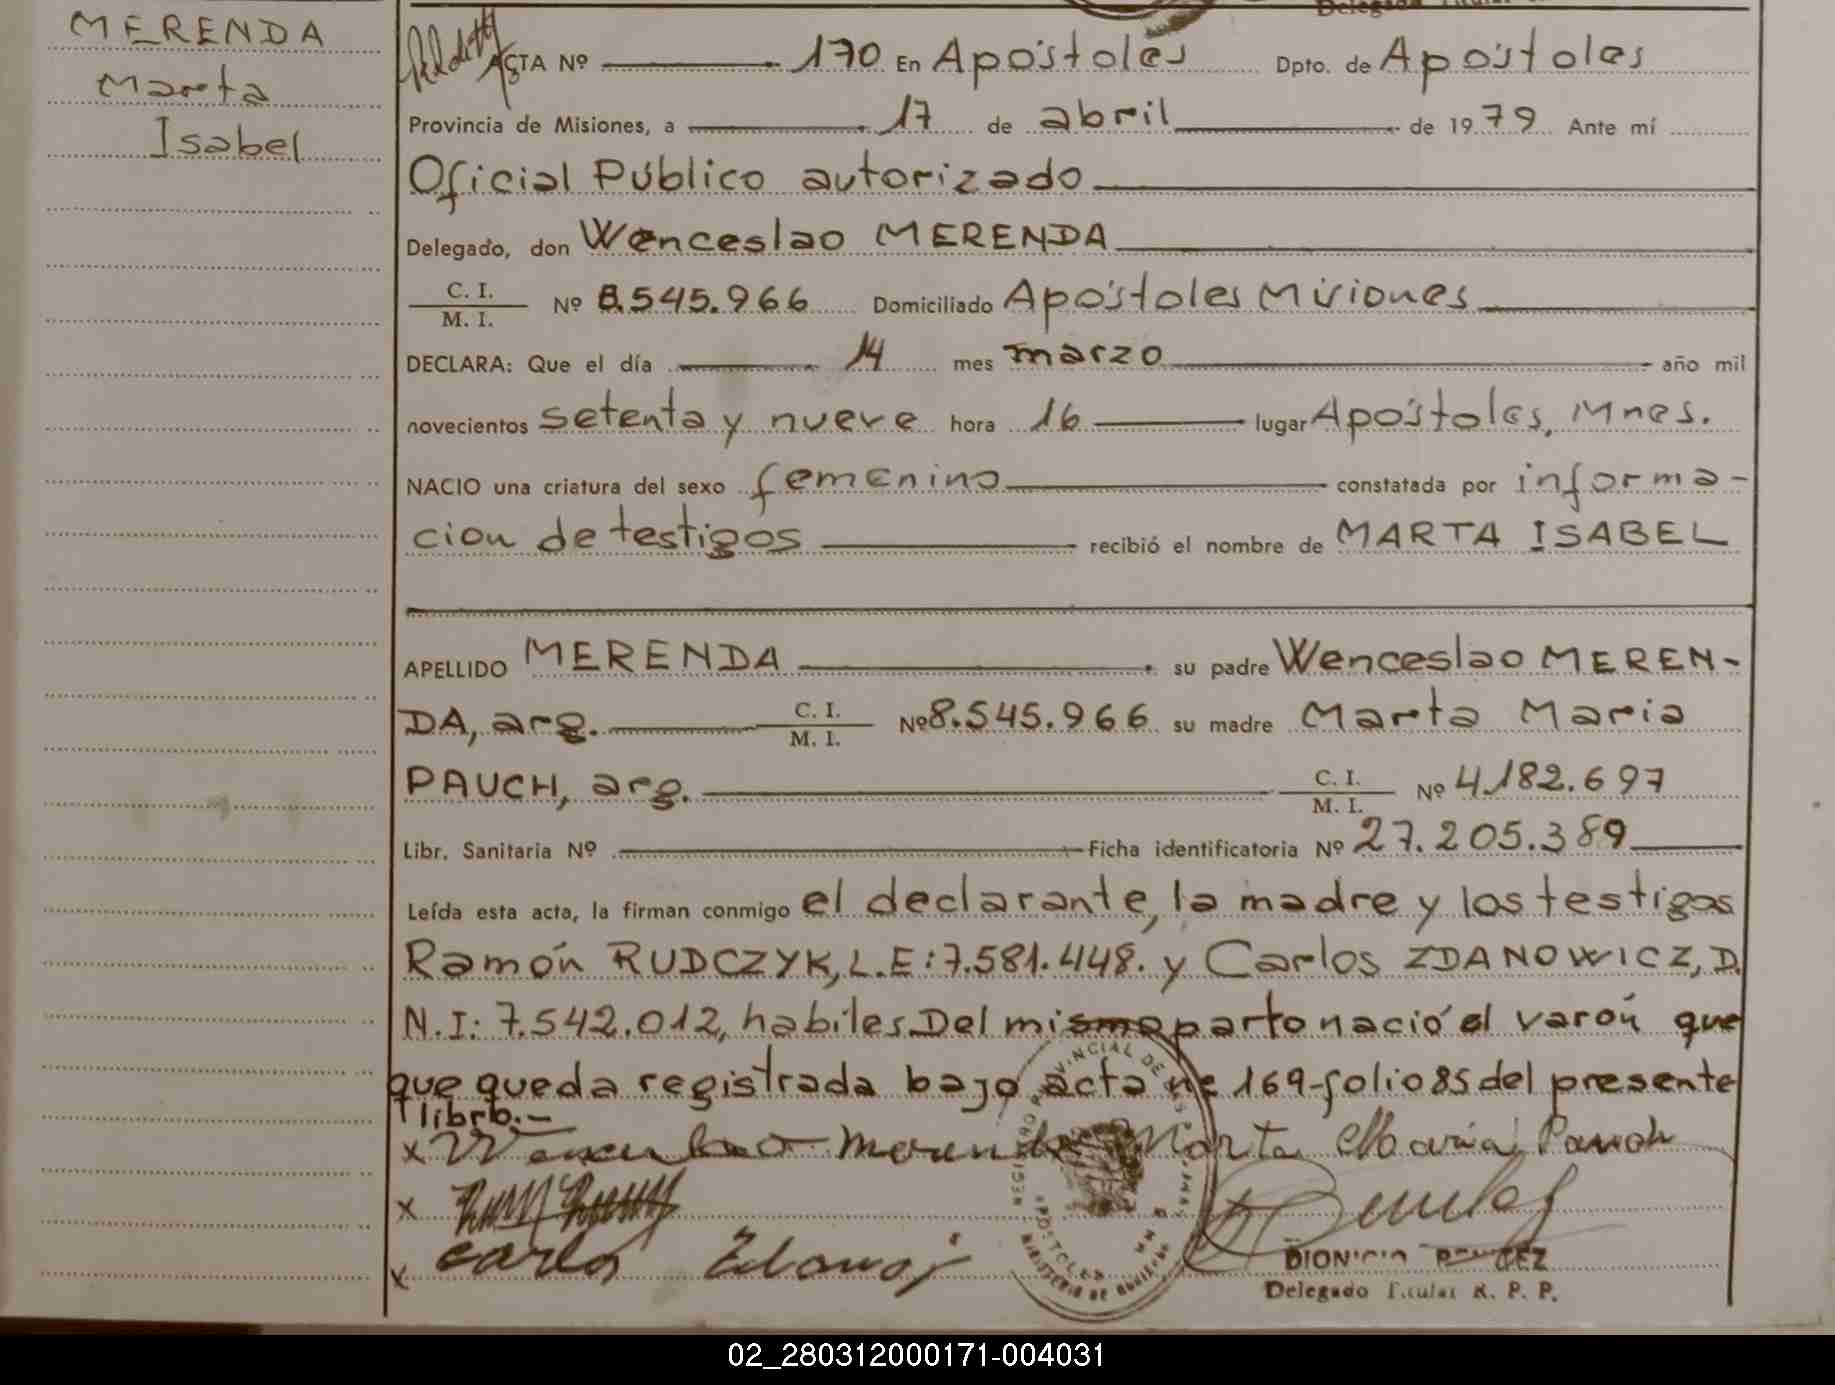 MERENDA
Marta
Isabel
ACTA Nº 170 En Apóstoles Dpto. de Apóstoles
Provincia de Misiones, a 17 de abril de 1979 Ante mí
Oficial Público autorizado
Delegado, don Wenceslao MERENDA
C. I. / M. I. Nº 8.545.966 Domiciliado Apóstoles Misiones
DECLARA: Que el día 14 mes marzo año mil
novecientos setenta y nueve hora 16 lugar Apóstoles, Mnes.
NACIO una criatura del sexo femenino constatada por informa-
cion de testigos recibió el nombre de MARTA ISABEL
APELLIDO MERENDA su padre Wenceslao MEREN-
DA, arg. C. I. / M. I. Nº 8.545.966 su madre Marta Maria
PAUCH, arg. C. I. / M. I. Nº 4.182.697
Libr. Sanitaria Nº Ficha identificatoria Nº 27.205.389
Leída esta acta, la firman conmigo el declarante, la madre y los testigos
Ramón RUDCZYK, L.E: 7.581.448. y Carlos ZDANOWICZ, D.
N.I: 7.542.012, habiles. Del mismo parto nació el varón que
que queda registrada bajo acta nº 169-folio 85 del presente
libro.-
x Wenceslao Merenda Marta Maria Pauch
x
x Carlos
REGISTRO PROVINCIAL DE LAS PERSONAS
APOSTOLES
MINISTERIO DE GOBIERNO
DIONICIO BENITEZ
Delegado Titular R. P. P.
02_280312000171-004031